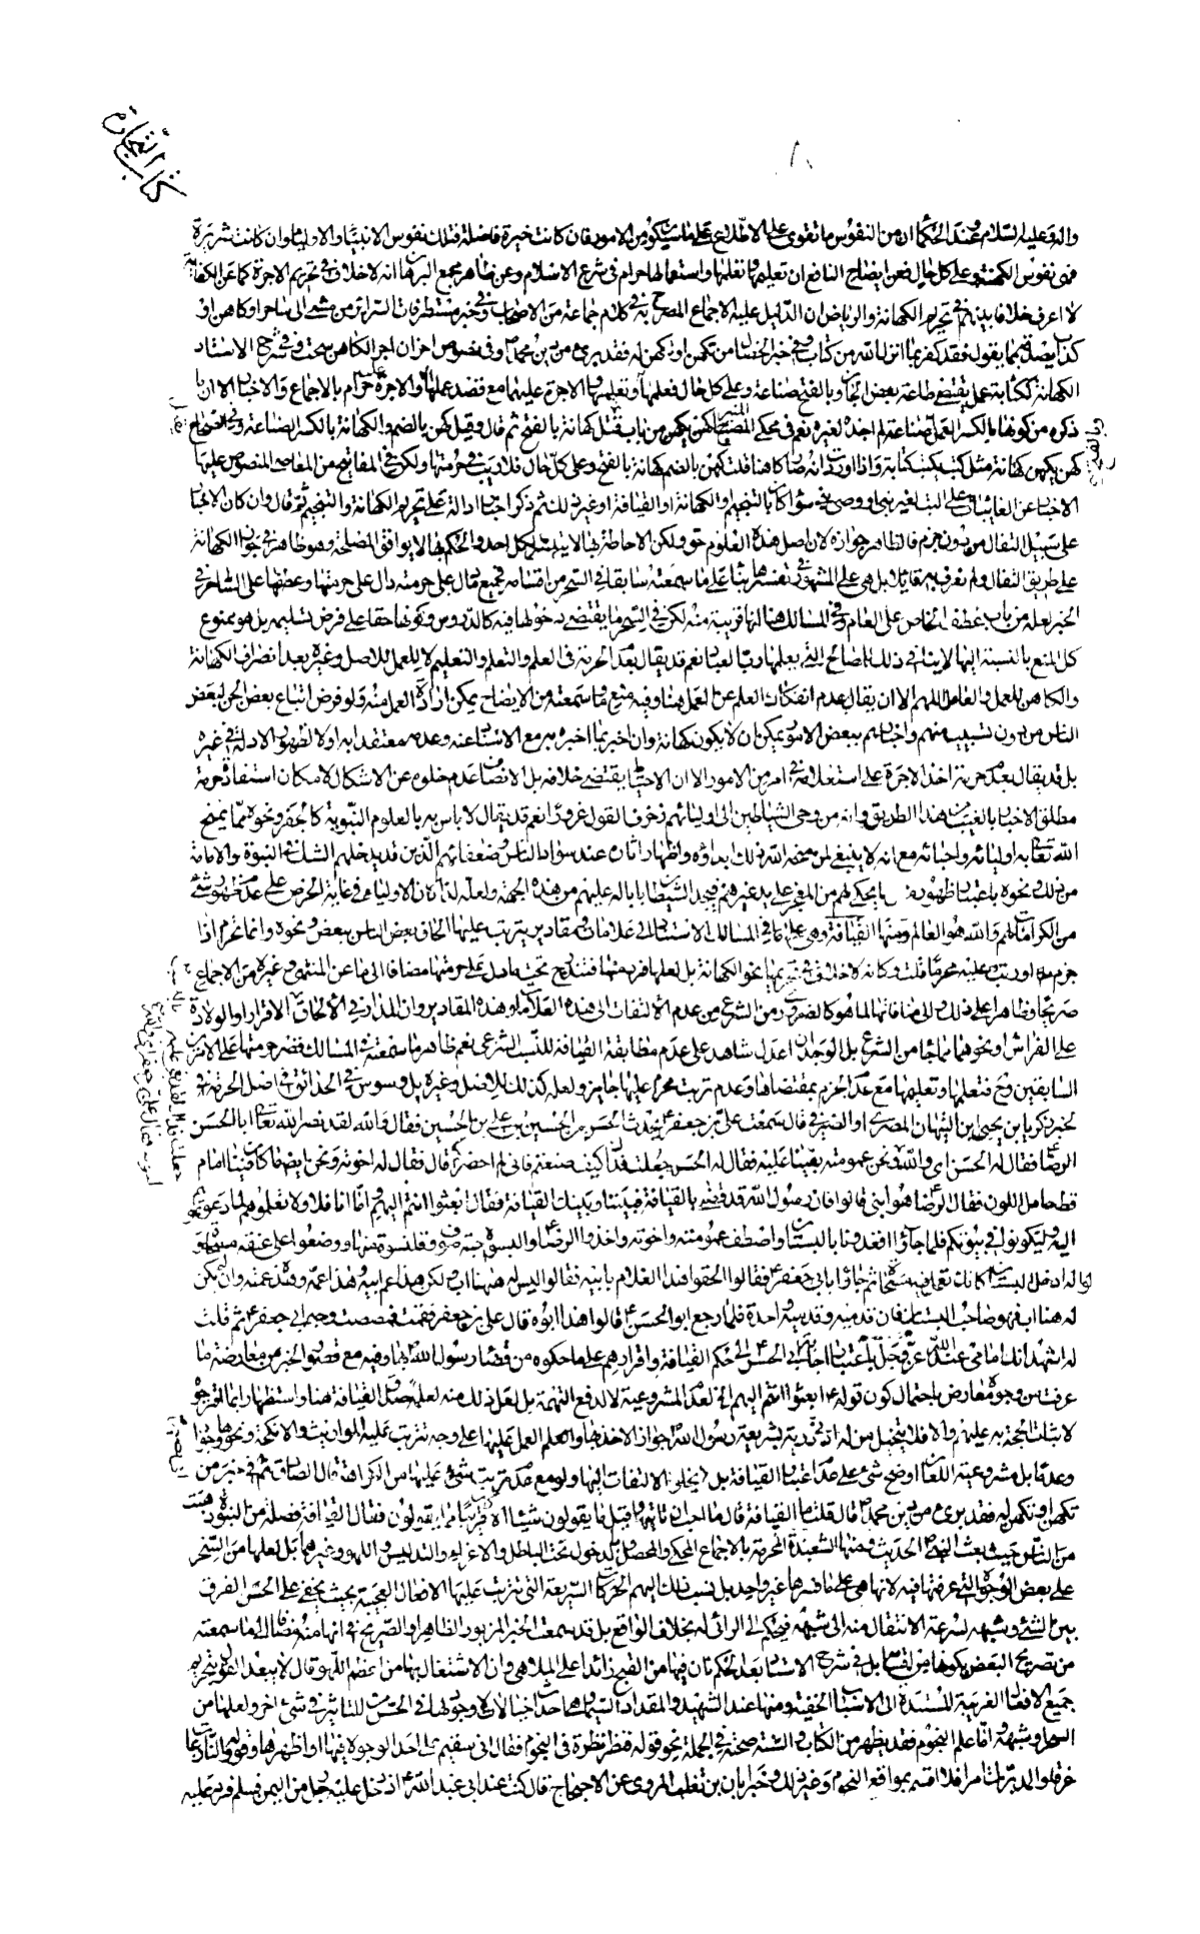 كتاب التجارة
واله وعليه السلام وعند الحكماء ان من النفوس ما تقوى على الاطلاع على ما سيكون من الامور فان كانت خيرة فاضلة فتلك نفوس الانبياء والاولياء وان كانت شريرة
فهي نفوس الكهنة وعلى كل حال فعن ايضاح النافع ان تعليمها وتعلمها واستعمالها حرام في شرع الاسلام وعن ظاهر مجمع البرهان انه لا خلاف في تحريم الاجرة كما عن الكفاية
لا اعرف خلافا بينهم في تحريم الكهانة والرياض ان الدليل عليه الاجماع المصرح به في كلام جماعة من الاصحاب وفي خبر مستطرفات السرائر من مشى الى ساحر او كاهن او
كذاب يصدقه بما يقول فقد كفر بما انزل الله من كتاب وفي خبر الخصال من تكهن او تكهن له فقد برئ من دين محمد ص وفي نصوص اخر ان اجر الكاهن سحت وفي شرح الاستاد
الكهانة ككتابة عمل يقتضي طاعة بعض الجان وبالفتح صناعة وعلى كل حال فعلمها وتعليمها والاجرة عليهما مع قصد عملها والاجرة عليه حرام بالاجماع والاخبار الا ان ما
ذكره من كونها بالكسر العمل صناعة لم اجده لغيره نعم في محكي المصباح المنير كهن يكهن من باب قتل كهانة بالفتح ثم قال وقيل كهن بالضم والكهانة بالكسر الصناعة وفي الصحاح
كهن يكهن كهانة مثل كتب يكتب كتابة واذا اردت انه صار كاهنا قلت كهن بالضم كهانة بالفتح وعلى كل حال فلا ريب في حرمتها ولكن في المفاتيح من المعاصي المنصوص عليها
الاخبار عن الغائبات على البت لغير نبي او وصي نبي سواء كان بالتنجيم او الكهانة او القيافة او غير ذلك ثم ذكر اخبارا دالة على تحريم الكهانة والتنجيم ثم قال وان كان الاخبار
على سبيل التفال من دون جزم فالظاهر جوازه لان اصل هذه العلوم حق ولكن الاحاطة بها لا يتيسر لكل احد والحكم بها لا يوافق المصلحة وهو ظاهر في جواز الكهانة
على طريق التفال ولم نعرف به قائلا بل هي على المشهور في تفسيرها بناء على ما سمعته سابقا في السحر من اقسامه فجميع ما دل على حرمته دال على حرمتها وعطفها على الساحر في
الخبر لعله من باب عطف الخاص على العام وفي المسالك هنا انها قريبة منه لكن في السحر ما يقتضي دخولها فيه كالدروس وكونها حقا على فرض تسليمه بل هو ممنوع
كل المنع بالنسبة اليها لا ينافي ذلك لمصالح التي يعلمها رب العباد نعم قد يقال بعدم الحرمة في العلم والتعلم والتعليم لا للعمل للاصل وغيره بعد انصراف الكهانة
والكاهن للعمل والعامل اللهم الا ان يقال بعدم انفكاك العلم عن العمل هنا وفيه منع وما سمعته من الايضاح يمكن ارادة العمل منه ولو فرض اتباع بعض الجن لبعض
الناس من دون تسبيب منهم واخبارهم ببعض الامور يمكن ان لا يكون كهانة وان اخبر بما اخبره به مع الاسناد عنه وعدم معتقدا به اولا لظهور الادلة في غيره
بل قد يقال بعدم حرمة اخذ الاجرة على استعلامه في امر من الامور الا ان الاحتياط يقتضي خلافه بل الانصاف عدم خلوه عن الاشكال لامكان استفادة حرمة
مطلق الاخبار بالغيب من هذا الطريق وانه من وحي الشياطين الى اوليائهم زخرف القول غرورا نعم قد يقال لا باس به بالعلوم النبوية كالجفر ونحوه مما يمنح
الله تعالى به اوليائه واحبائه مع انه لا ينبغي لمن منحه الله ذلك ابداؤه واظهار اثاره عند سواد الناس وضعفائهم الذين قد يدخلهم الشك في النبوة والامامة
من ذلك ونحوه باعتبار ظهور ما يحكى لهم من المعجز على يد غيرهم فيجد الشيطان بابا له عليهم من هذه الجهة ولعله لذا كان الاولياء في غاية الحرص على عدم ظهور شيء
من الكرامات لهم والله هو العالم ومنها القيافة وهي على ما في المسالك الاستناد الى علامات ومقادير يترتب عليها الحاق بعض الناس ببعض ونحوه وانما تحرم اذا
جزم به او رتب عليه محرما قلت وكانه لا خلاف في تحريمها نحو الكهانة بل لعلها فرد منها فتندرج تحت ما دل على حرمتها مضافا الى ما عن المنتهى وغيره من الاجماع
صريحا وظاهرا على ذلك والى منافاتها لما هو كالضروري من الشرع من عدم الالتفات الى هذه العلامات وهذه المقادير وان المدار في الالحاق الاقرار او الولادة
على الفراش او نحوهما مما جاء من الشرع بل الوجدان اعدل شاهد على عدم مطابقة القيافة للنسب الشرعي نعم ظاهر ما سمعته في المسالك قصر حرمتها على الامرين
السابقين وح فتعلمها وتعليمها مع عدم الجزم بمقتضاها وعدم ترتب محرم عليها جايز ولعله كذلك للاصل وغيره بل وسوس في الحدائق في اصل الحرمة في
لخبر زكريا بن يحيى ابن النعمان المصري او الصيرفي قال سمعت علي بن جعفر ع يحدث الحسن بن الحسين بن علي بن الحسين فقال والله لقد نصر الله تعالى ابا الحسن
الرضا ع فقال له الحسن اي والله ونحن عمومته بغينا عليه فقال له الحسن جعلت فداك كيف صنعتم فاني لم احضركم قال فقال له اخوته ونحن ايضا ما كان فينا امام
قط حائل اللون فقال الرضا ع هو ابني قالوا فان رسول الله قد قضى بالقيافة فبيننا وبينك القيافة فقال ابعثوا انتم اليهم واما انا فلا ولا تعلموهم لما دعوتموهم
اليه وليكونوا في بيوتكم فلما جاؤا اقعدونا بالبستان واصطف عمومته واخوته واخذوا الرضا ع والبسوه جبة صوف وقلنسوة منها ووضعوا على عنقه مسحاة و
قالوا له ادخل البستان كانك تعمل فيه ثم جاؤا بابي جعفر ع فقالوا الحقوا هذا الغلام بابيه فقالوا ليس له ههنا اب ولكن هذا عم ابيه وهذا عمه وهذه عمته وان يكن
له هنا اب فهو صاحب البستان فان قدميه وقدميه واحدة فلما رجع ابو الحسن ع قالوا هذا ابوه قال علي بن جعفر فقمت فمصصت ريق ابي جعفر ع ثم قلت
له اشهد انك امامي عند الله عز وجل باعتبار اجابة ابي الحسن الى حكم القيافة واقرارهم على ما حكوه من قضاء رسول الله بها وفيه مع قصور الخبر عن معارضة ما
عرفت من وجوه معارض باحتمال كون قوله ع ابعثوا انتم اليهم الخ لعدم المشروعية لا لدفع التهمة بل لعل ذلك منه لعلمه بحصول القيافة هنا واستظهار انما القوه جو
لاثبات الحجة به عليهم والا فلا يتخيل من له ادنى دربة بشريعة رسول الله جواز الاخذ بها والعلم العمل عليها على وجه تترتب عليه المواريث والانكحة ونحوها وجودا
وعدما بل مشروعية اللعان اوضح شيء على عدم اعتبار القيافة بل لا يخلو الالتفات اليها ولو مع عدم ترتب شيء عليها من الكراهة قال الصادق ع في خبر من
تكهن او تكهن له فقد برئ من دين محمد ص قال قلت فالقيافة قال ما احب ان تاتيهم وقيل ما يقولون شيئا الا كان قريبا مما يقولون فقال القيافة فضلة من النبوة ذهبت
من الناس حيث بعث النبي ص الحديث ومنها الشعبذة المحرمة بالاجماع المحكي والمحصل ولدخوله تحت الباطل والاغراء والتدليس واللهو وغيرها بل لعلها من السحر
على بعض الوجوه التي عرفتها فيه لانها هي على ما فسرها غير واحد بل نسب ذلك اليهم الحركات السريعة التي تترتب عليها الافعال العجيبة بحيث يخفى على الحس الفرق
بين الشيء وشبهه لسرعة الانتقال منه الى شبهه فيحكم الرائي له بخلاف الواقع بل قد سمعت الخبر المزبور الظاهر او الصريح في انها منه مضافا الى ما سمعته
من تصريح البعض بكونها من اقسامه بل في شرح الاستاد بعد الحكم بان فيها من القبح زائدا على الملاهي وان الاشتغال بها من اعظم اللهو قال لا يبعد القول بتحريم
جميع الافعال الغريبة المستندة الى الاسباب الخفية ومنها عند الشهيد والمقداد السيمياء احداث خيالات لا وجود لها في الحس للتاثير في شيء اخر ولعلها من
السحر او شبهه واما علم النجوم فقد يظهر من الكتاب والسنة صحته في الجملة نحو قوله فنظر نظرة في النجوم فقال اني سقيم على احد الوجوه فيها او اظهرها وقوله والنازعات
غرقا والمدبرات امرا فلا اقسم بمواقع النجوم وغير ذلك وخبر ابان بن تغلب المروي عن الاحتجاج قال كنت عند ابي عبد الله ع اذ دخل عليه رجل من اليمن فسلم فرد عليه